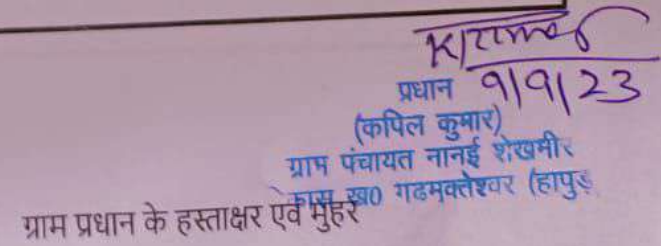 प्रधान 9/9/23
(कपिल कुमार)
ग्राम पंचायत नानई शेखमीर
ख0 गढमुक्तेश्वर (हापुड़
ग्राम प्रधान के हस्ताक्षर एवं मुहर